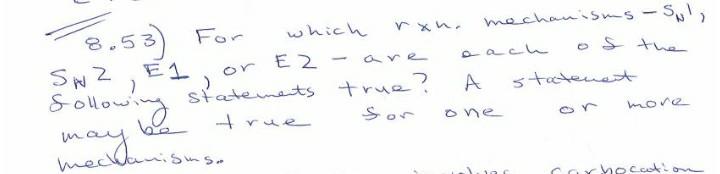 8.53) For which rxn. mechanisms - SN1,
SN2, E1, or E2 - are each of the
following statements true? A statement
may be true for one or more
mechanisms.
carbocation